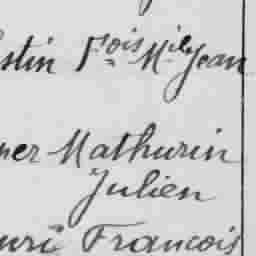 stin Fois Mil Jean
ner Mathurin
Julien
enri Francois